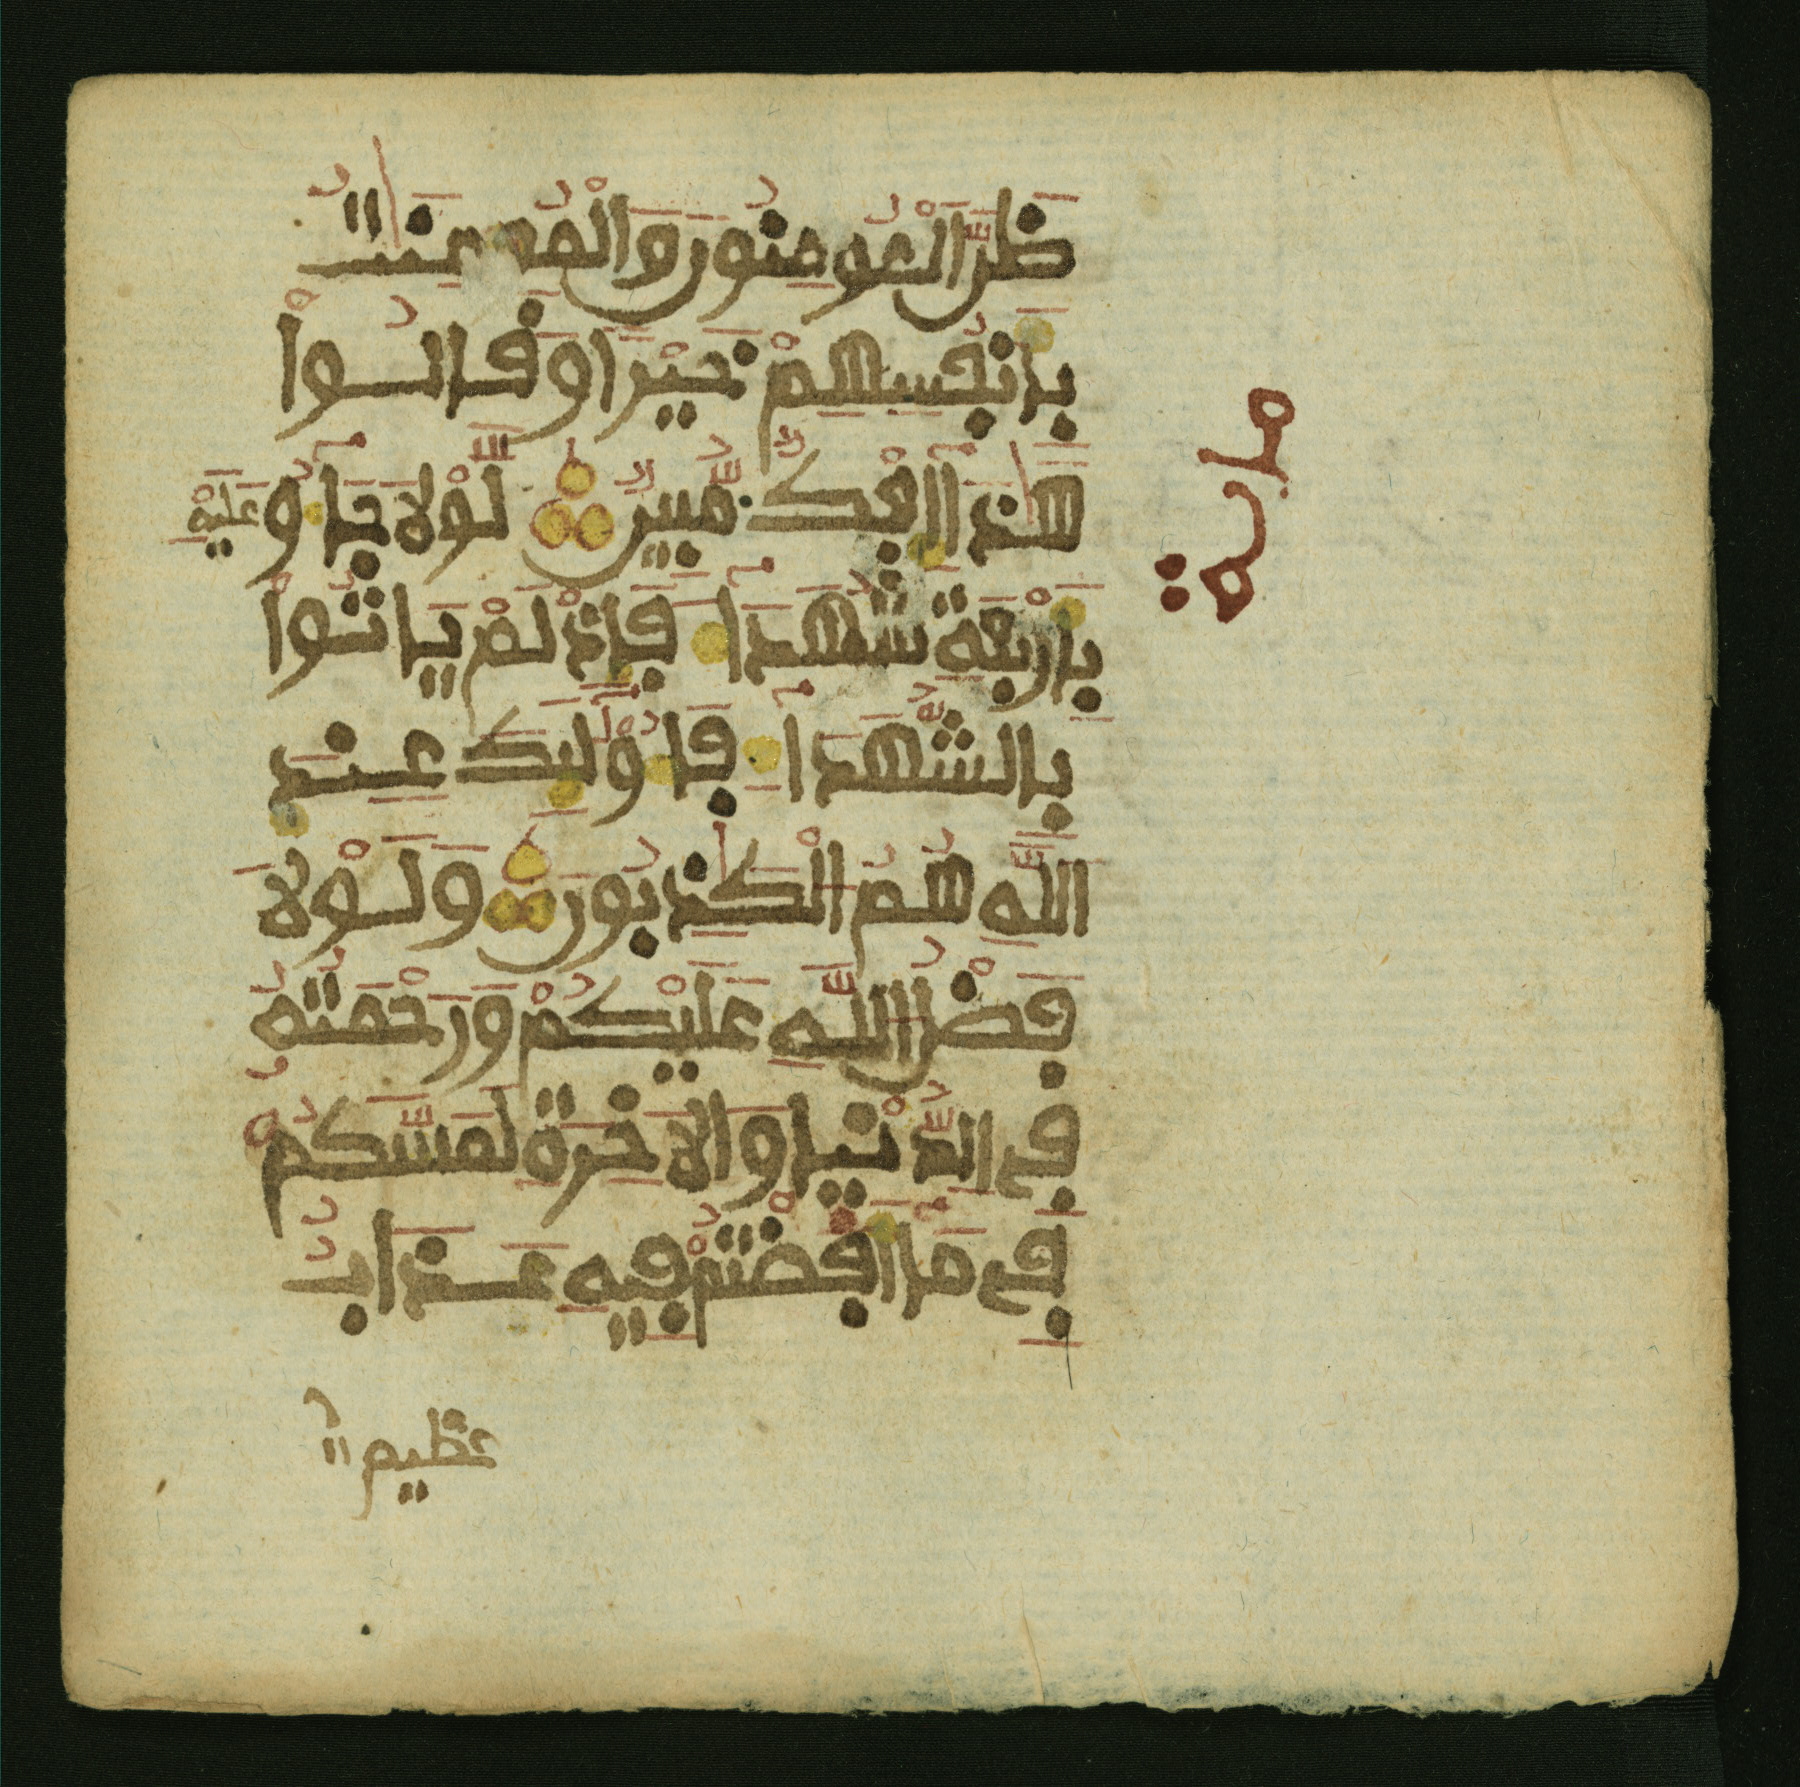 ظَنَّ الْمُومِنُونَ وَالْمُومِنَٰتُ
بِأَنفُسِهِمْ خَيْرًا وَقَالُواْ
هَٰذَا إِفْكٌ مُّبِينٌ لَّوْلَا جَآءُو عَلَيْهِ
بِأَرْبَعَةِ شُهَدَآءَ فَإِذْ لَمْ يَاتُواْ
بِالشُّهَدَآءِ فَأُوْلَٰٓئِكَ عِندَ
اللَّهِ هُمُ الْكَٰذِبُونَ وَلَوْلَا
فَضْلُ اللَّهِ عَلَيْكُمْ وَرَحْمَتُهُ
فِي الدُّنْيَا وَالَاخِرَةِ لَمَسَّكُمُ
فِي مَآ أَفَضْتُمْ فِيهِ عَذَابٌ
عظيم